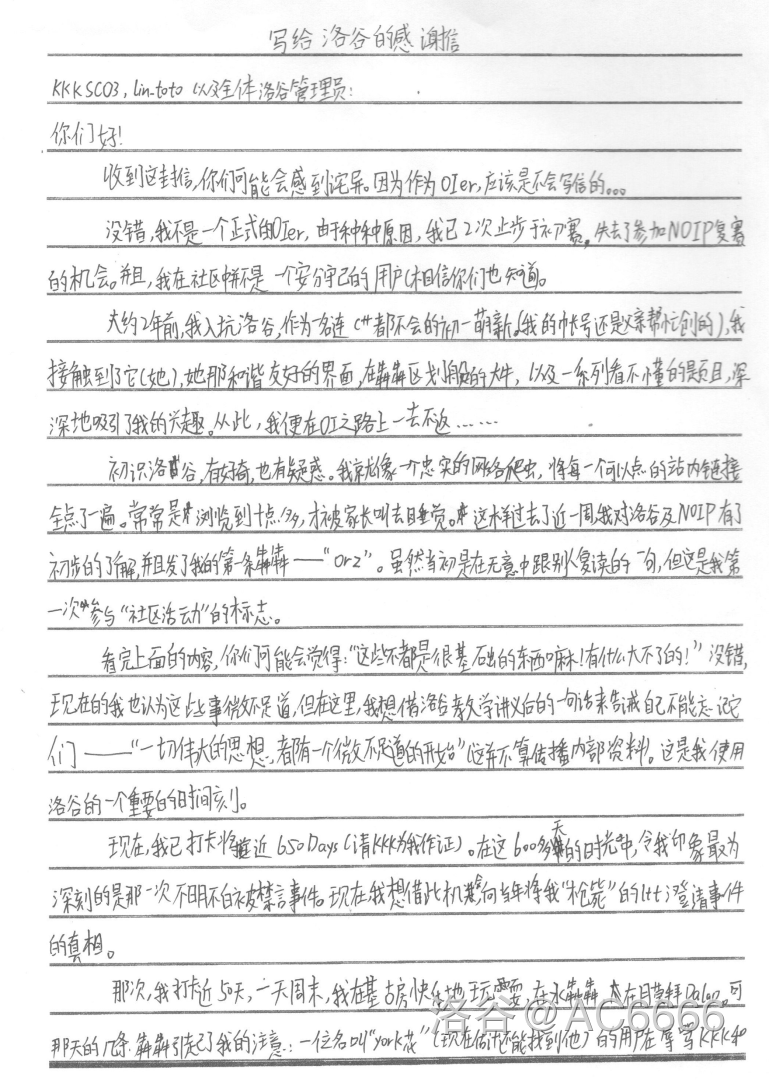 写给洛谷的感谢信
KKKSC03, lin-toto 以及全体洛谷管理员:
你们好!
收到这封信,你们可能会感到诧异。因为作为OIer,应该是不会写信的...
没错,我不是一个正式的OIer,由于种种原因,我已2次止步于初赛,失去了参加NOIP复赛
的机会。并且,我在社区中并不是一个安分守己的用户(相信你们也知道。
大约2年前,我入坑洛谷,作为一名连C++都不会的初一萌新(我的帐号还是父亲帮忙创的),我
接触到了它(她),她那和谐友好的界面,在犇犇区划般的大牛,以及一系列看不懂的题目,深
深地吸引了我的兴趣。从此,我便在OI之路上一去不返……
初识洛谷,有好奇,也有疑惑。我就像一个忠实的网络爬虫,将每一个可以点的站内链接
全点了一遍。常常是浏览到十点多,才被家长叫去睡觉。这样过去了近一周,我对洛谷及NOIP有了
初步的了解,并且发了我的第一条犇犇——“Orz”。虽然当初是在无意中跟别人复读的一句,但这是我第
一次参与“社区活动”的标志。
看完上面的内容,你们可能会觉得:“这些不都是很基础的东西嘛!有什么大不了的!”没错,
现在的我也认为这些事微不足道,但在这里,我想借洛谷教学讲义后的一句话来告诫自己不能忘记它
们——“一切伟大的思想,都有一个微不足道的开始”(这并不算传播内部资料)。这是我使用
洛谷的一个重要的时间刻。
现在,我已打卡将近650Days(请KKK为我作证)。在这600多天的时光中,令我印象最为
深刻的是那一次不明不白被禁言事件。现在我想借此机会,向当年将我“枪毙”的ltt澄清事件
的真相。
那次,我打卡近50天,一天周末,我在基古房快乐地玩耍,在水犇犇,在膜拜Dalao。可
那天的几条犇犇引起了我的注意:一位名叫“york花”(现在估计还能找到他)的用户在辱骂KKK和
洛谷@AC6666